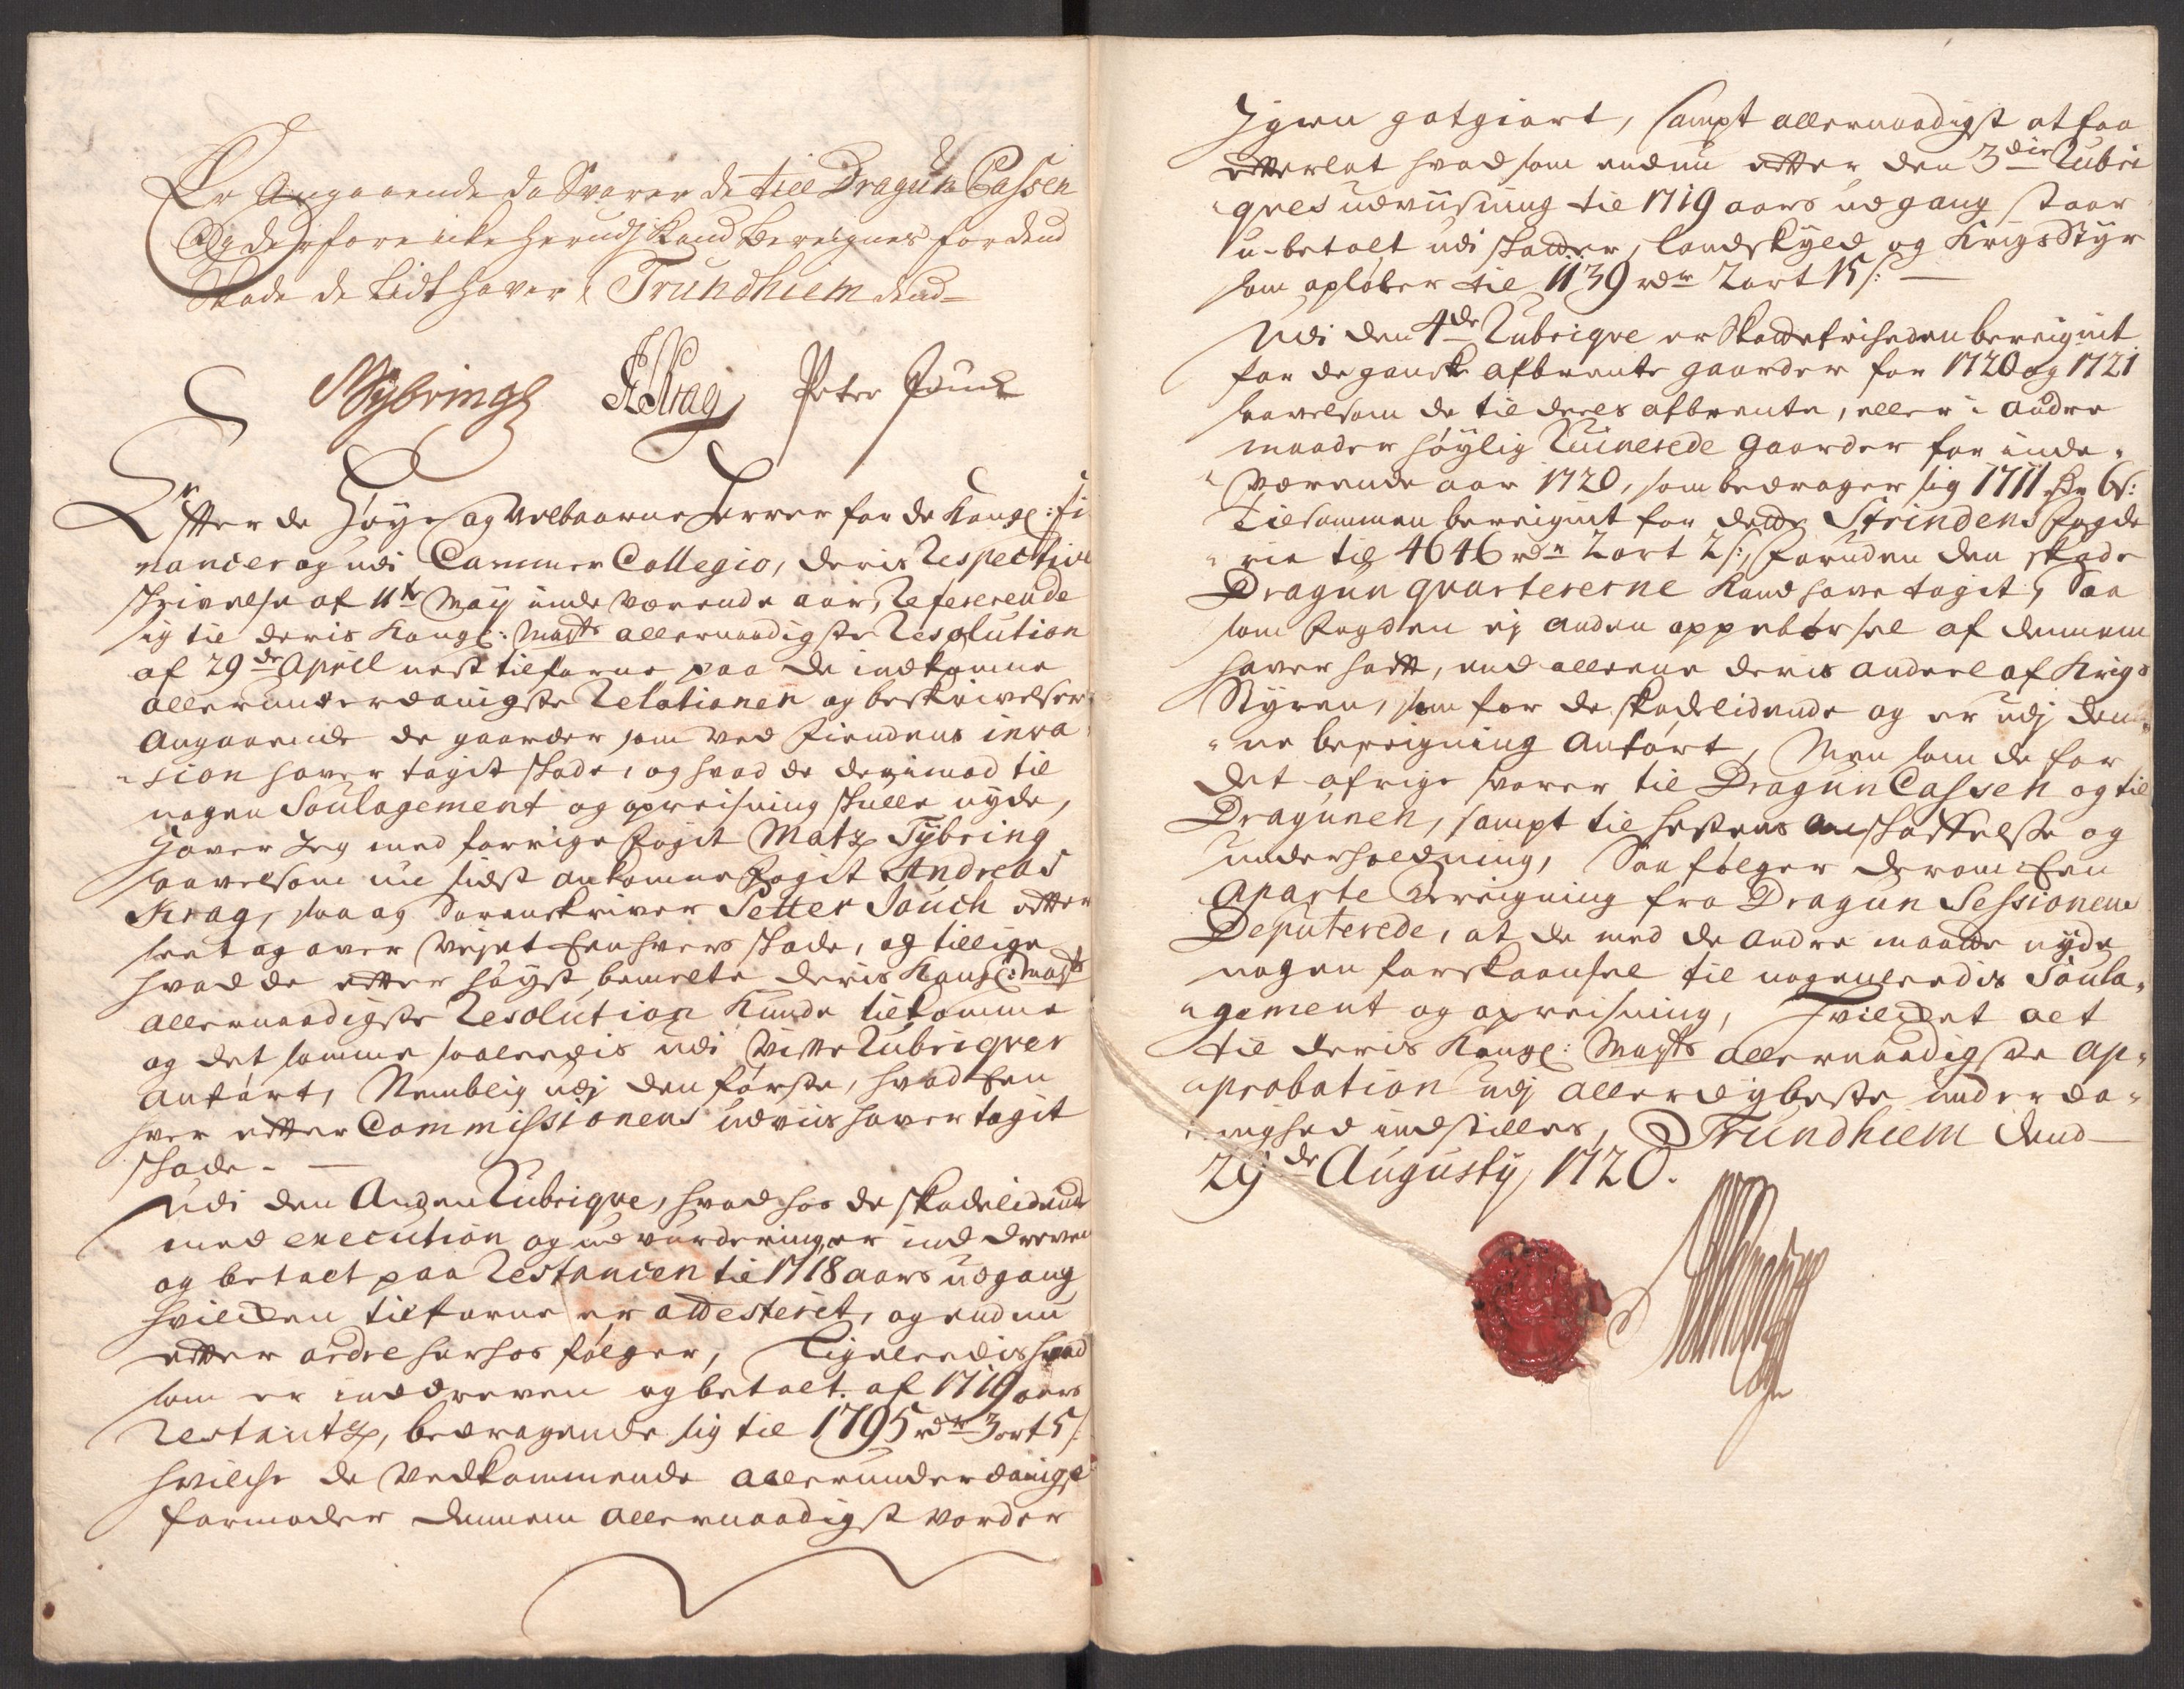 Er Angaaende da Svarer de till Dragun Cassen
Og derfore icke herudj kand bereignes for dend
Skade de Lidt haver, Trundhiem dend
MTybring AKrag Peter Jouch
Efter de Høye og Velbaarne Herrer for de Kongl: fi
nancer og udi Cammer Collegio, deris Respective
schrivelse af 11te Maij inde værende aar, Refererende
sig til deris Kongl: Maÿts allernaadigste Resolution
af 29de April nest tilforne paa de indkomne
allerunderdanigste Relationer og beskrivelser
Angaaende de gaarder som ved Fiendens inva
sion haver tagit skade, og hvad de derimod til
nogen Soulagement og opreisning skulle nyde,
Haver Jeg med forrige fogit Matz Tybring
saavelsom nu sidst ankomne fogit Andreas
Krag, saa og Sorenskriver Petter Jouch efter
seet og over veyet Een hvers skade, og tillige
hvad de efter høyst bemelte deris Kongl: Mayts
allernaadigste Resolution kunde tilkomme
og det samme saaledis udi visse Rubriqver
anført, Nemblig udj den første, hvad Een
hver efter Commissionens udviis haver tagit
skade. —
Udi den Anden Rubriqve, hvad hos de skadelidende
med execution og udvurdering er ind dreven
og betalt paa Restancen til 1718 aars udgang
hvilcken tilforne er atdesteret, og end nu
efter ordre herhos følger, Ligeleedis hvad
som er inddreven og betalt af 1719 aars
Restantz, bedragende sig til 1795 rdr 3 ort 5 s:
hvilche de Vedkommende allerunderdanigst
formoder dennem allernaadigst vorder
Igien godgiort, sampt allernaadigst at faa
efterlat hvad som endnu efter den 3die Rubri
qves udviisning til 1719 aars udgang staar
u-betalt udi skatter, landskyld og KrigsStyr
som opløber til 1139 rdr 2 ort 15 s: —
Udi den 4de Rubriqve er Skattefriheden bereignit
for de gansk afbrente gaarder for 1720 og 1721
saavelsom de til deels afbrente, eller i andre
maader høylig Ruinerede gaarder for inde-
værende aar 1720, som bedrager sig 1711 rdr 6 s:
Tilsammen bereignit for dette Strindens Fogde
rie til 4646 rdr 2 ort 2 s:, foruden den skade
Dragun qvartererne kand have tagit, Saa
som Fogden ej anden oppebørsel af dennem
haver hatt, end alleene deris andeel af Krigs
Styren, som for de skadelidende og er udj den
ne bereigning Anført, Men som de for
det øfrige svarer til Dragun Cassen og til
Dragunen, sampt til hestens anschaffelse og
underholdning, Saa følger derom Een
Aparte bereigning fra Dragun Sessionens
Deputerede, at de med de andre maatte nyde
nogen forskaansel til nogenleedis Soula-
gement og opreisning, Hvilcket alt
til deris Kongl: Mayts allernaadigste Ap-
probation udj allerdybeste underda-
nighed indstilles, Trundhiem dend
29de Augusty 1720.